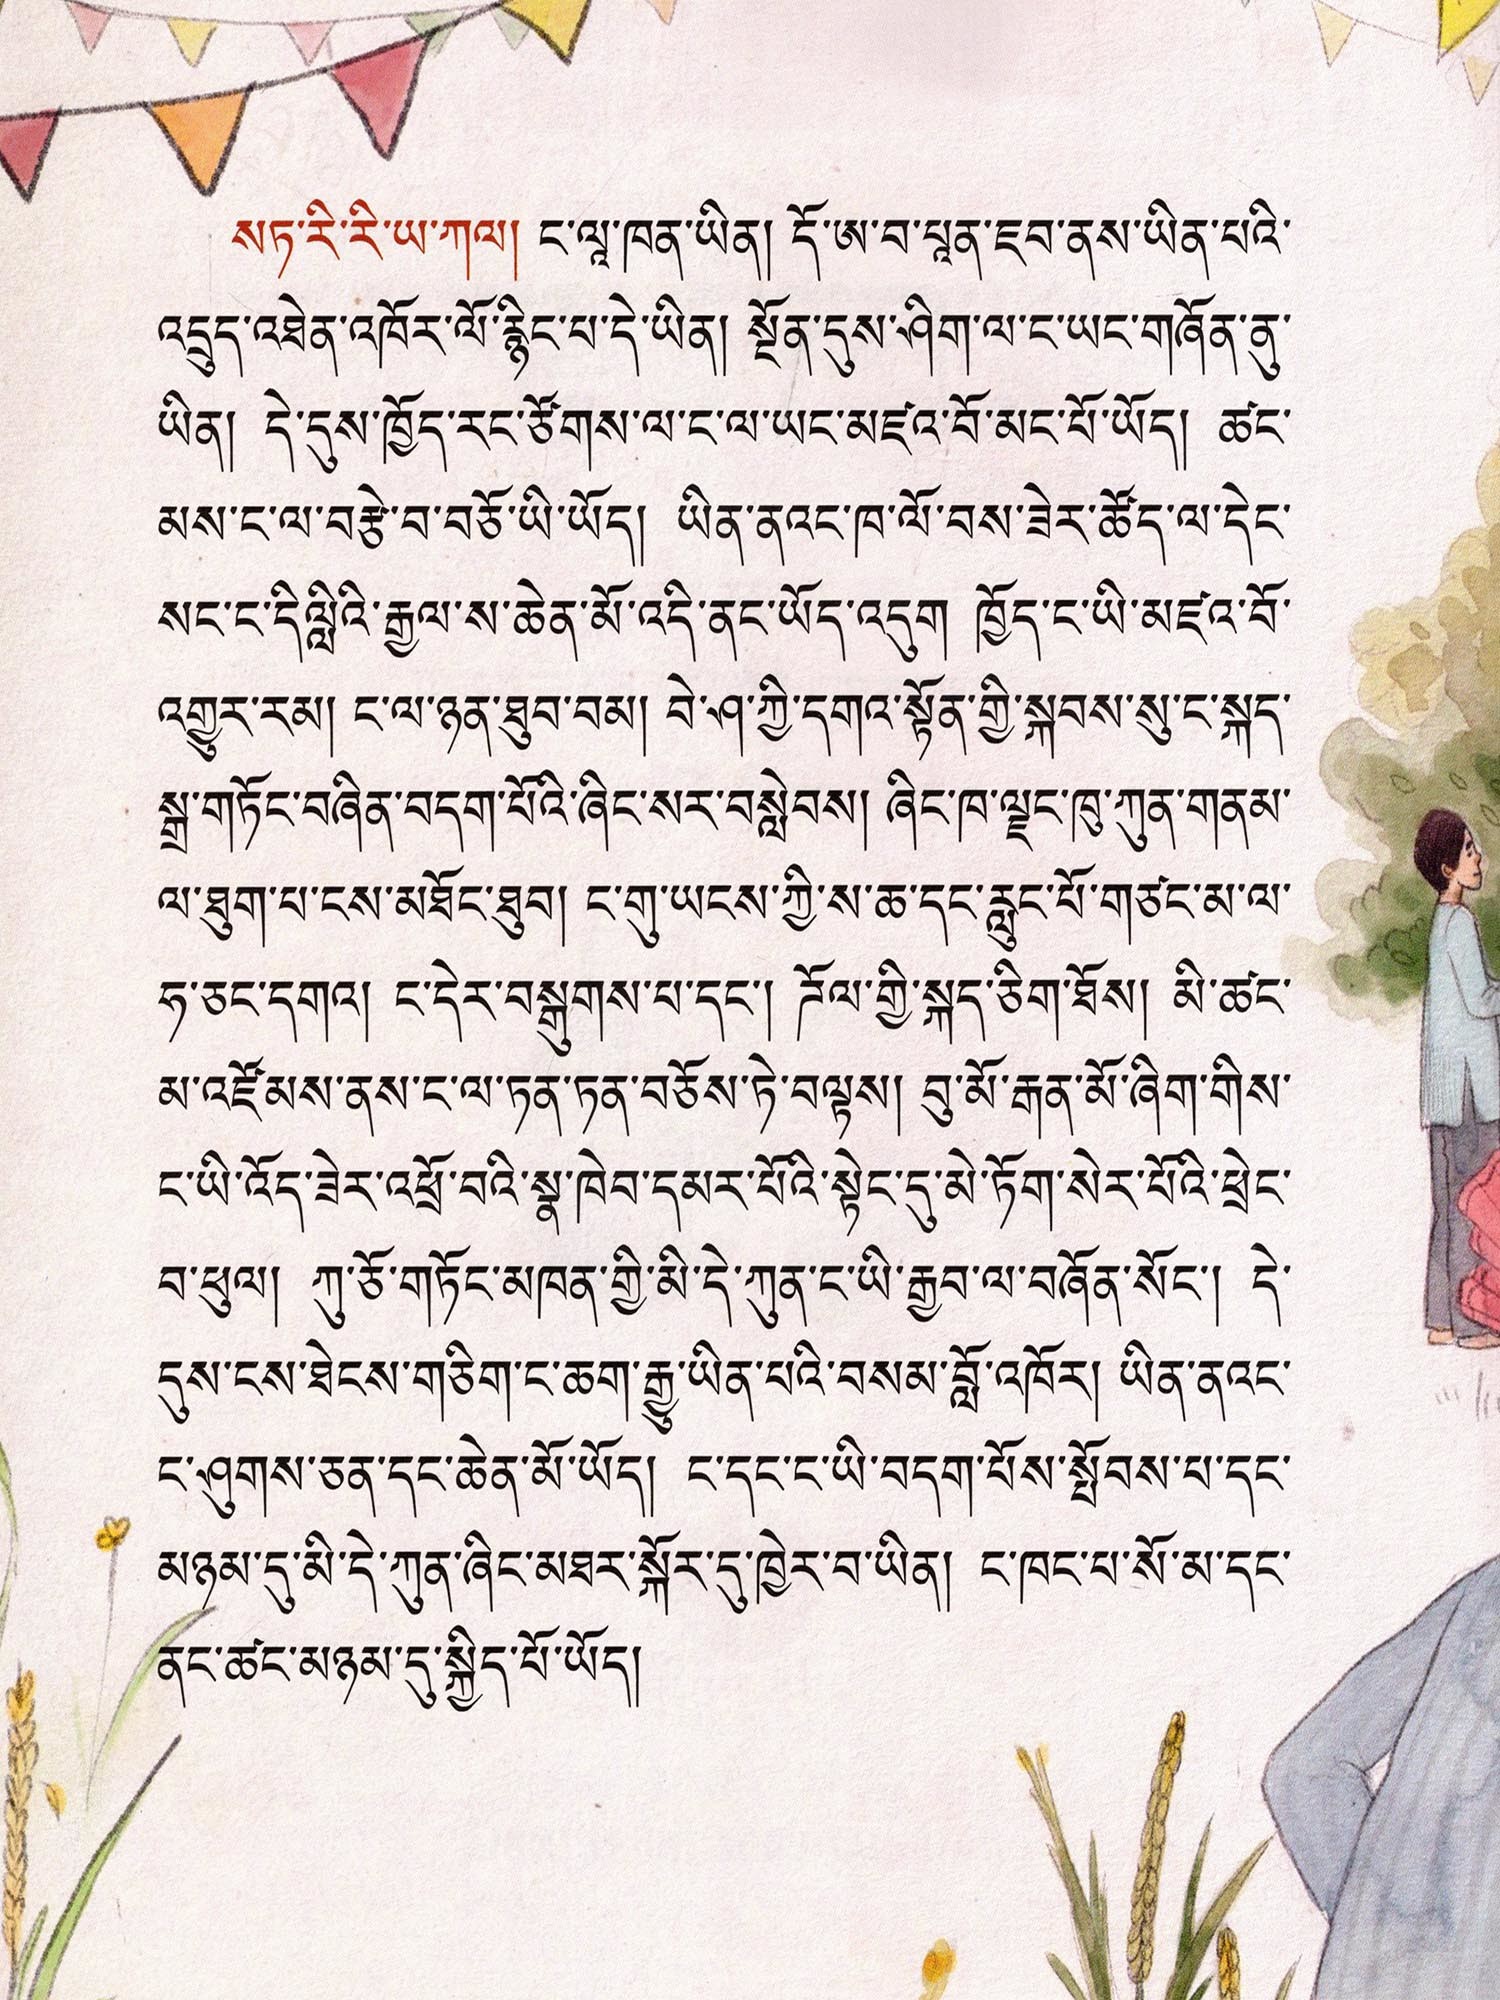 སཏ་རི་རི་ཡ་ཀལ། ང་ལཱུ་ཁན་ཡིན། དོ་ཨ་བ་པཱན་ཇབ་ནས་ཡིན་པའི་
འདྲུད་འཐེན་འཁོར་ལོ་རྙིང་པ་དེ་ཡིན། སྔོན་དུས་ཤིག་ལ་ང་ཡང་གཞོན་ནུ་
ཡིན། དེ་དུས་ཁྱོད་རང་ཙོགས་ལ་ང་ལ་ཡང་མཛའ་བོ་མང་པོ་ཡོད། ཚང་
མས་ང་ལ་བརྩེ་བ་བཅོ་ཡི་ཡོད། ཡིན་ནའང་ཁ་ལོ་བས་ཟེར་ཚོད་ལ་དེང་
སང་ང་དིལླིའི་རྒྱལ་ས་ཆེན་མོ་འདི་ནང་ཡོད་འདུག ཁྱོད་ང་ཡི་མཛའ་བོ་
འགྱུར་རམ། ང་ལ་ཉན་ཐུབ་བམ། བེ་ཤ་ཀྱི་དགའ་སྟོན་གྱི་སྐབས་སུ་ང་སྐད་
སྒྲ་གཏོང་བཞིན་བདག་པོའི་ཞིང་སར་བསླེབས། ཞིང་ཁ་ལྗང་ཁུ་ཀུན་གནམ་
ལ་ཐུག་པ་ངས་མཐོང་ཐུབ། ང་གུ་ཡངས་ཀྱི་ས་ཆ་དང་རླུང་པོ་གཙང་མ་ལ་
ཧ་ཅང་དགའ། ང་དེར་བསྒུགས་པ་དང་། ཌོལ་གྱི་སྐད་ཅིག་ཐོས། མི་ཚང་
མ་འཛོམས་ནས་ང་ལ་ཏན་ཏན་བཅོས་ཏེ་བལྟས། བུ་མོ་རྒན་མོ་ཞིག་གིས་
ང་ཡི་འོད་ཟེར་འཕྲོ་བའི་སྣ་ཁེབ་དམར་པོའི་སྟེང་དུ་མེ་ཏོག་སེར་པོའི་ཕྲེང་
བ་ཕུལ། ཀུ་ཅོ་གཏོང་མཁན་གྱི་མི་དེ་ཀུན་ང་ཡི་རྒྱབ་ལ་བཞོན་སོང་། དེ་
དུས་ངས་ཐེངས་གཅིག་ང་ཆག་རྒྱུ་ཡིན་པའི་བསམ་བློ་འཁོར། ཡིན་ནའང་
ང་ཤུགས་ཅན་དང་ཆེན་མོ་ཡོད། ང་དང་ང་ཡི་བདག་པོས་སྤོབས་པ་དང་
མཉམ་དུ་མི་དེ་ཀུན་ཞིང་མཐར་སྐོར་དུ་ཁྱེར་བ་ཡིན། ང་ཁང་པ་སོ་མ་དང་
ནང་ཚང་མཉམ་དུ་སྐྱིད་པོ་ཡོད།